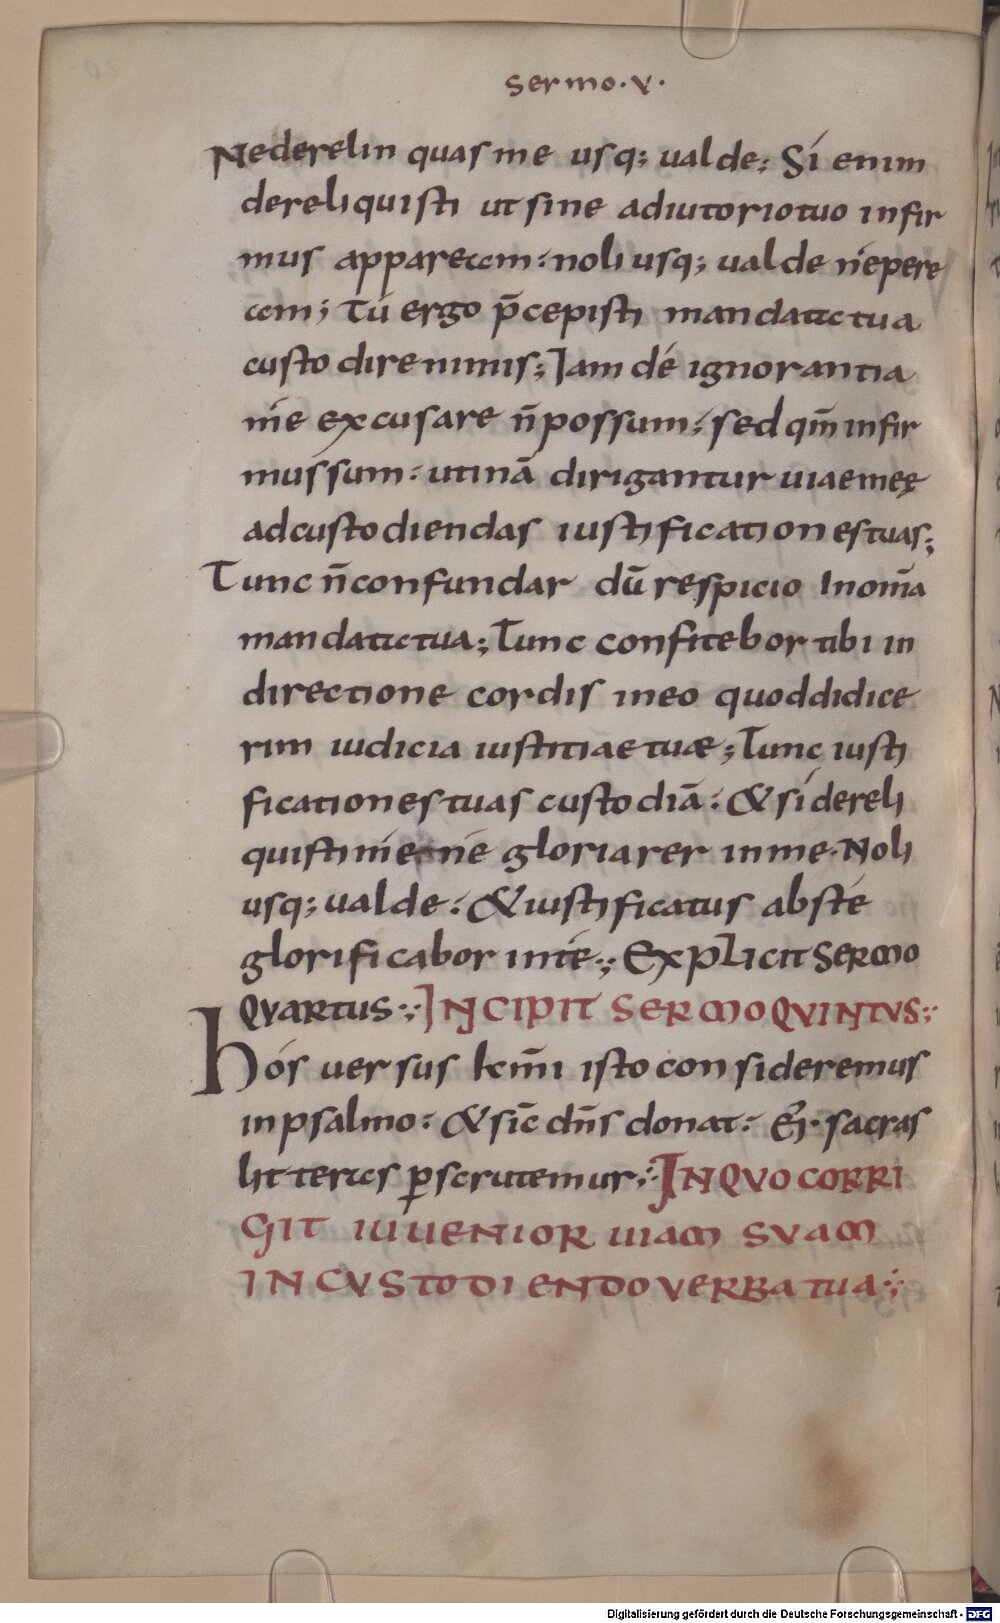 Sermo·v·
Nederelin quas me usq; ualde; Si enim
dereliquisti ut sine adiutorio tuo infir
mus apparecem: noli usq; ualde néepere
cem; Tú ergo p̄cepisti mandata tua
custodire nimis; Iam dé ignorantia
mé excusare n̄ possum; sed qm̄ infir
mus sum: utinā dirigantur uiae meę
ad custodiendas iustificationes tuas;
Tunc n̄ confundar dū respicio In om̄a
mandata tua; Tunc confitebor tibi in
directione cordis meo quod didice
rim iudicia iustitiae tuæ; Tunc iusti
ficationes tuas custodiā: & sí dereli
quisti mé né gloriarer in me· Noli
usq; ualde: & iustificatus abs té
glorificabor in té:; Explicit Sermo
Quartus:; INCIPIT SERMO QUINTUS:;
hós uersus km̄i isto consideremus
in psalmo: & sic̄ dn̄s donat: ei· sacras
litteras p̱scrutemur:; IN QUO CORRI
GIT IUVENIOR UIAM SUAM
IN CUSTODIENDO VERBA TUA:;
Digitalisierung gefördert durch die Deutsche Forschungsgemeinschaft - DFG